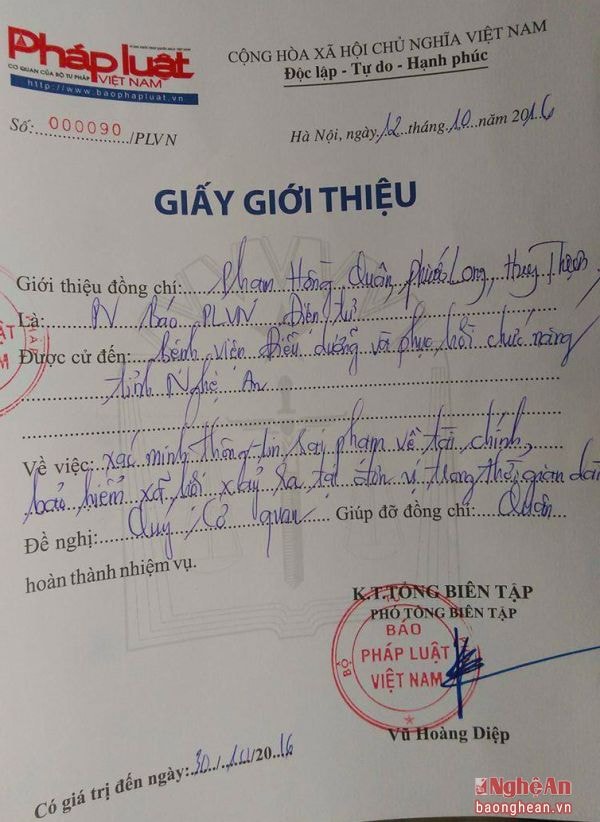 Pháp luật
CƠ QUAN CỦA BỘ TƯ PHÁP VIỆT NAM
http://www.baophapluat.vn
CỘNG HÒA XÃ HỘI CHỦ NGHĨA VIỆT NAM
Độc lập - Tự do - Hạnh phúc
Số: 000090 /PLVN
Hà Nội, ngày 12 tháng 10 năm 2016
GIẤY GIỚI THIỆU
Giới thiệu đồng chí: Phạm Hồng Quân, Phước Long, Huy Thịnh
Là: PV Báo PLVN Điện tử
Được cử đến: Bệnh viện Điều dưỡng và phục hồi chức năng
tỉnh Nghệ An
Về việc: xác minh thông tin sai phạm về tài chính,
bảo hiểm xã hội xảy ra tại đơn vị trong thời gian dài
Đề nghị: Quý Cơ quan Giúp đỡ đồng chí: Quân
hoàn thành nhiệm vụ.
K.T.TỔNG BIÊN TẬP
PHÓ TỔNG BIÊN TẬP
BÁO
PHÁP LUẬT
VIỆT NAM
Vũ Hoàng Diệp
Có giá trị đến ngày: 30/11/2016
Nghệ An
baonghean.vn